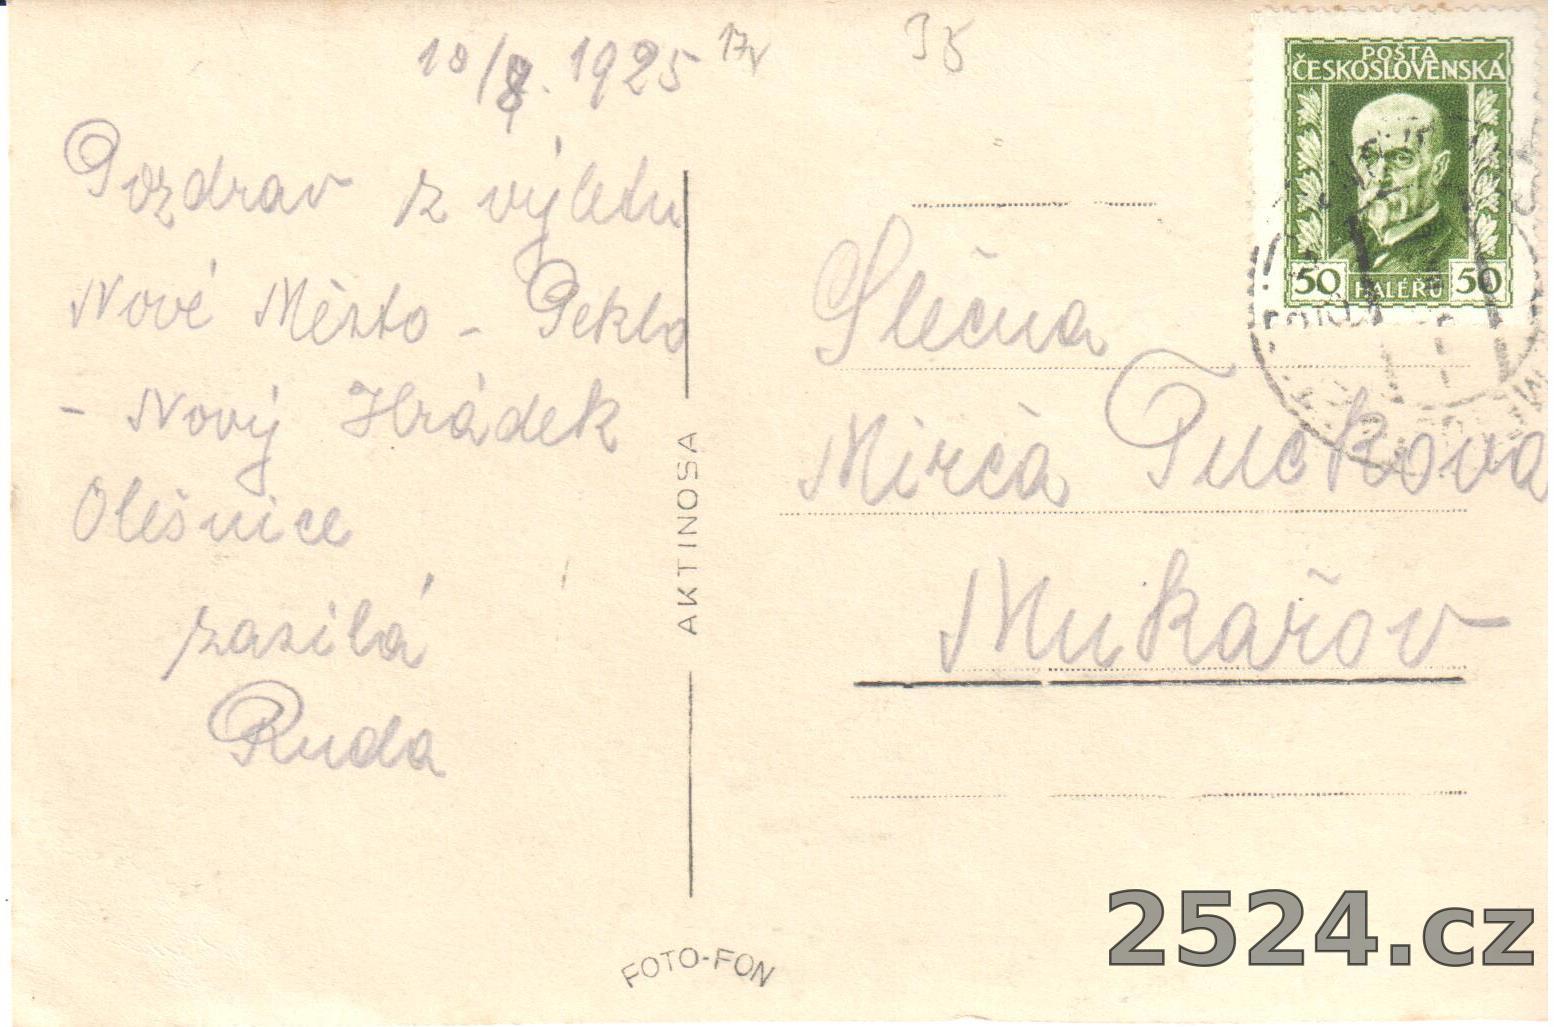 10/8. 1925
35
Pozdrav z výletu
Nové Město - Peklo
- Nový Hrádek
Olešnice
zasílá
Ruda
AKTINOSA
FOTO-FON
POŠTA
ČESKOSLOVENSKÁ
50 HALÉŘŮ 50
Slečna
Mirča Tučkova
Mukařov
2524.cz